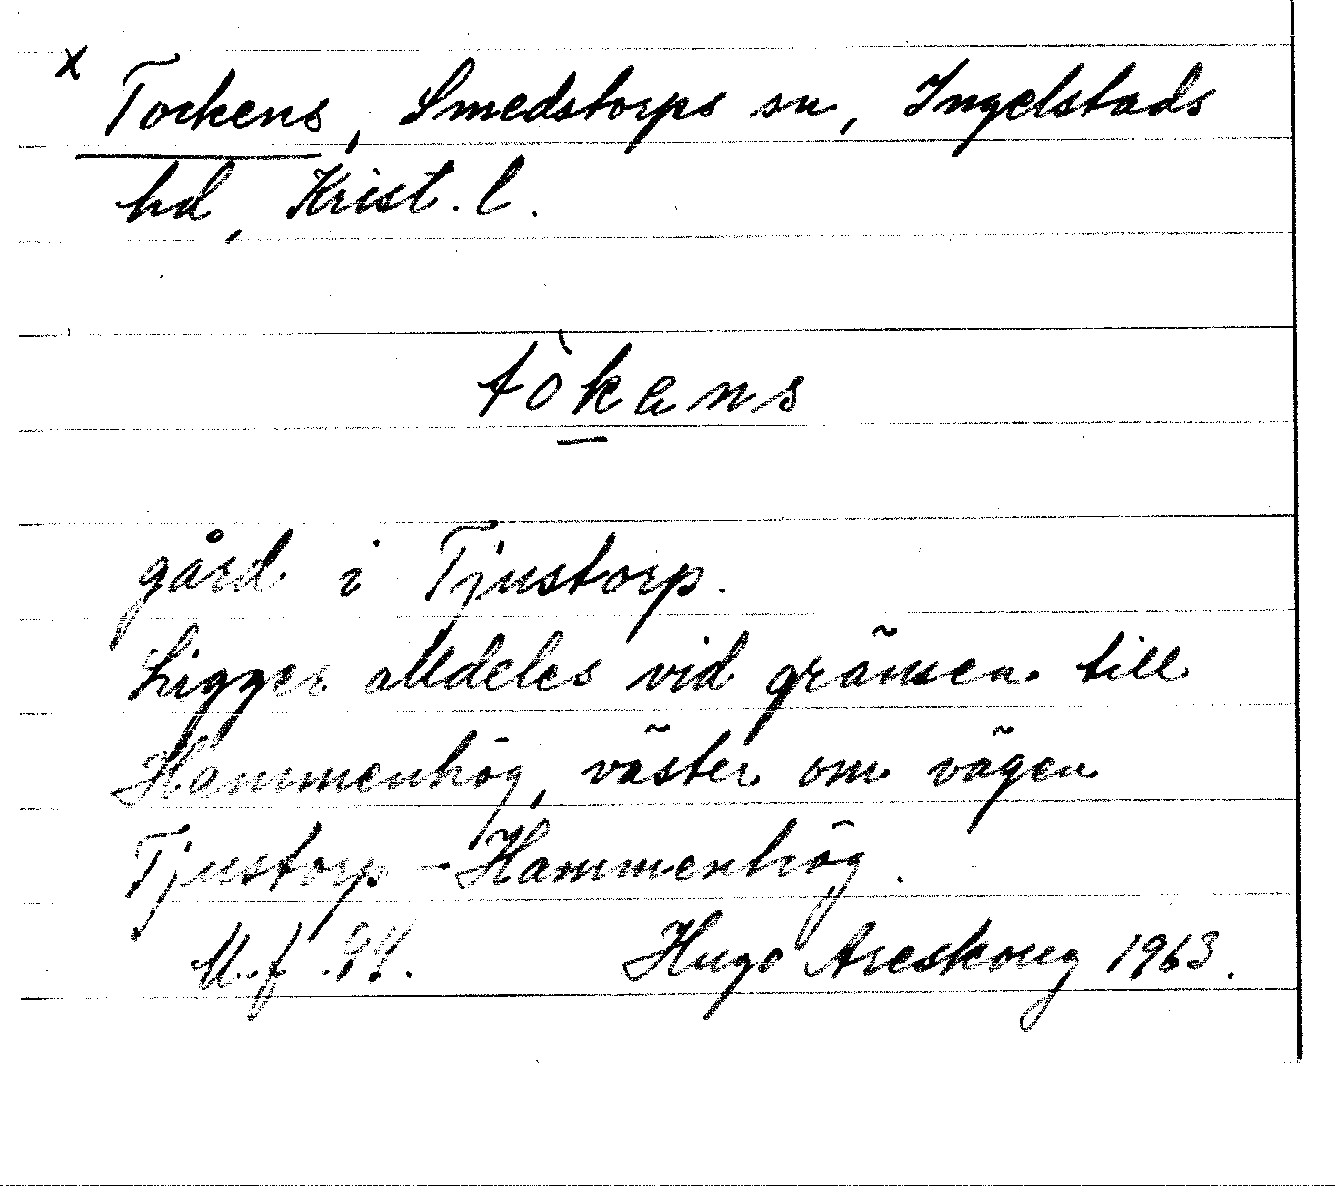 x Tockens, Smedstorps sn, Ingelstads
hd, Krist. l.
tòkans
gård i Tjustorp.
Ligger alldeles vid gränsen till
Hammenhög, väster om vägen
Tjustorp - Hammenhög.
M. f. 94. Hugo Areskoug 1963.